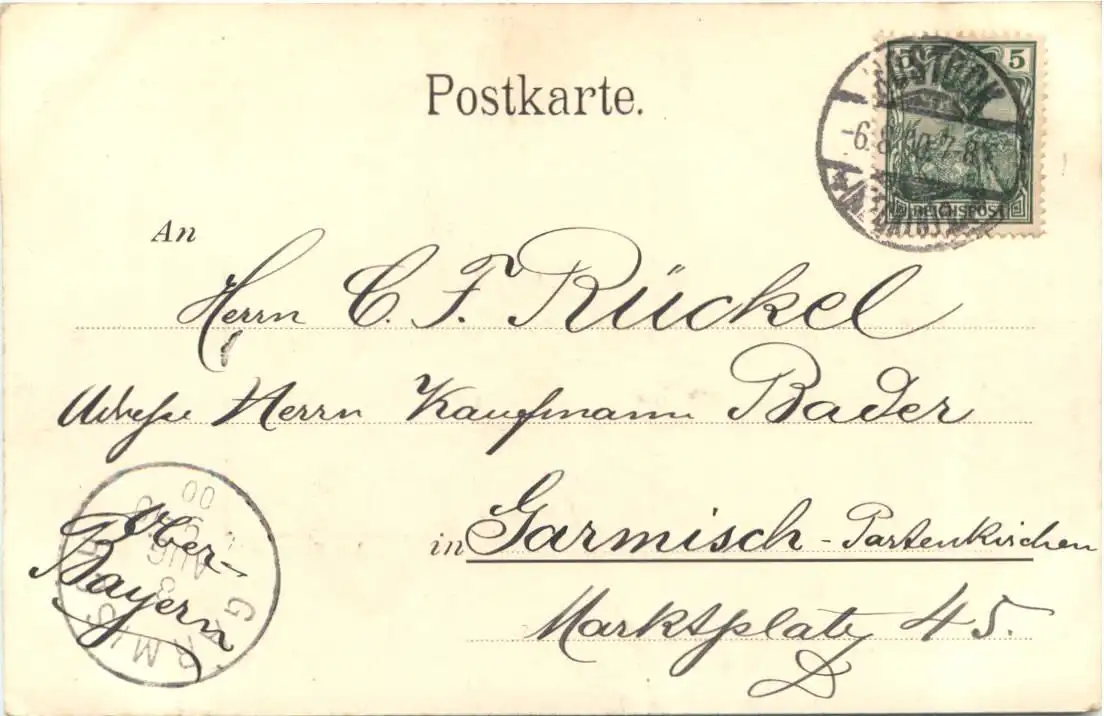 Postkarte.
5 5
REICHSPOST
ROSTOCK
-6.8.00.7-8
An
Herrn C. F. Rückel
Adresse Herrn Kaufmann Bader
in Garmisch - Partenkirchen
Marktplatz 45.
Ober-
Bayern
GARMISCH
8
AUG
00